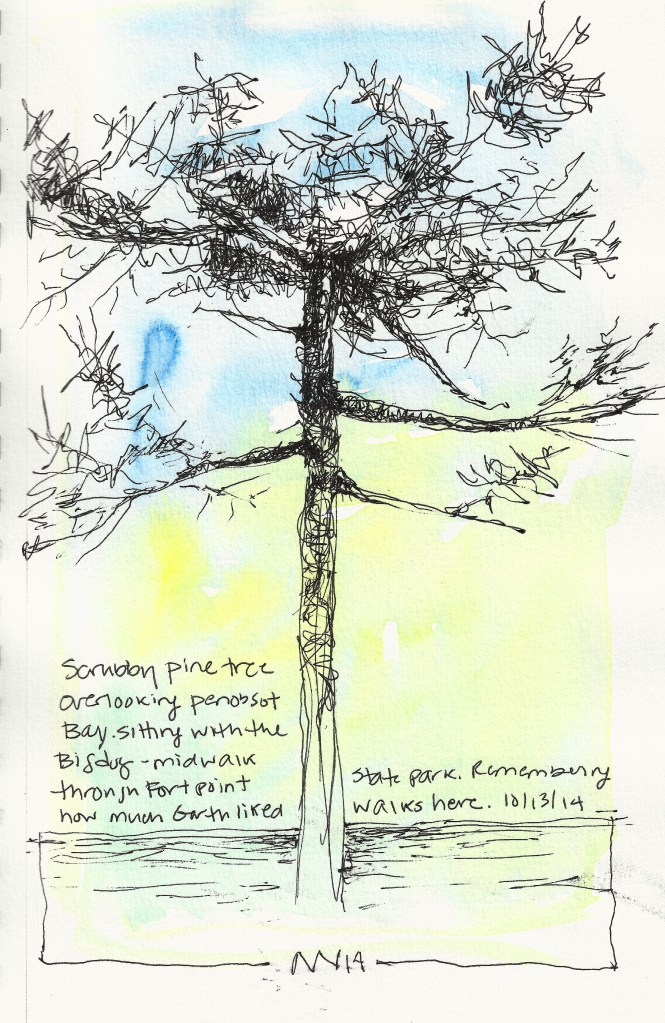 Scrubby pine tree
overlooking penobsot
Bay. sitting with the
Big dog - midwalk
through Fort point State park. Remembering
how much Garth liked walks here. 10/13/14
14